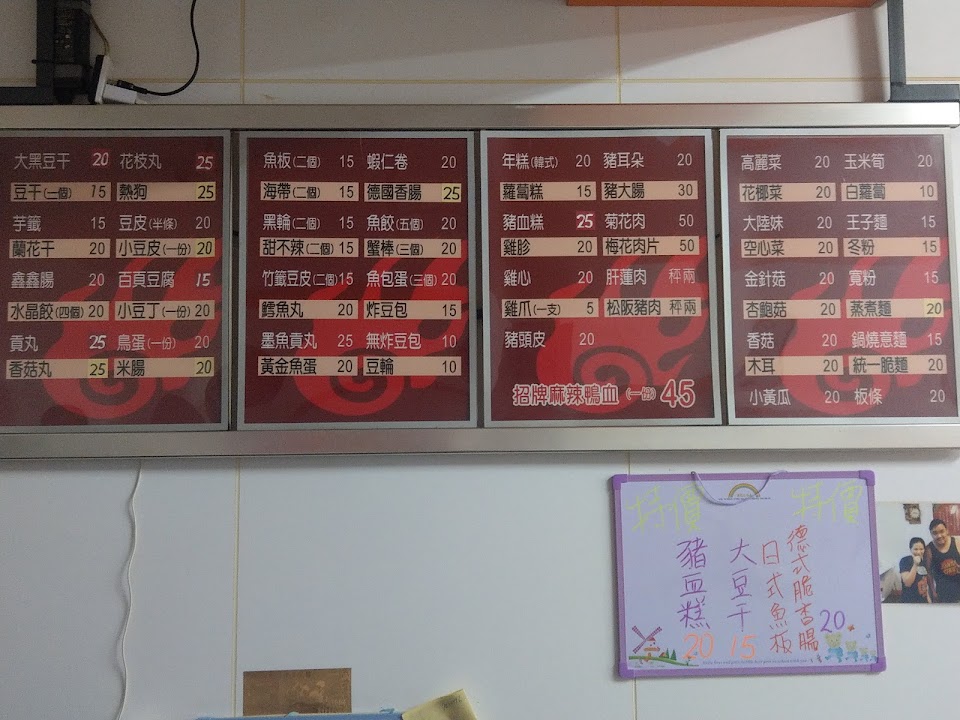 大黑豆干 20 花枝丸 25
豆干(一個) 15 熱狗 25
芋籤 15 豆皮(半條) 20
蘭花干 20 小豆皮(一份) 20
鑫鑫腸 20 百頁豆腐 15
水晶餃(四個) 20 小豆丁(一份) 20
貢丸 25 鳥蛋(一份) 20
香菇丸 25 米腸 20
魚板(二個) 15 蝦仁卷 20
海帶(二個) 15 德國香腸 25
黑輪(二個) 15 魚餃(五個) 20
甜不辣(二個) 15 蟹棒(三個) 20
竹籤豆皮(二個) 15 魚包蛋(三個) 20
鱈魚丸 20 炸豆包 15
墨魚貢丸 25 無炸豆包 10
黃金魚蛋 20 豆輪 10
年糕(韓式) 20 豬耳朵 20
蘿蔔糕 15 豬大腸 30
豬血糕 25 菊花肉 50
雞胗 20 梅花肉片 50
雞心 20 肝蓮肉 秤兩
雞爪(一支) 5 松阪豬肉 秤兩
豬頭皮 20
招牌麻辣鴨血(一份) 45
高麗菜 20 玉米筍 20
花椰菜 20 白蘿蔔 10
大陸妹 20 王子麵 15
空心菜 20 冬粉 15
金針菇 20 寬粉 15
杏鮑菇 20 蒸煮麵 20
香菇 20 鍋燒意麵 15
木耳 20 統一脆麵 20
小黃瓜 20 板條 20
特價 特價
豬血糕 20
大豆干 15
日式魚板
德式脆香腸 20